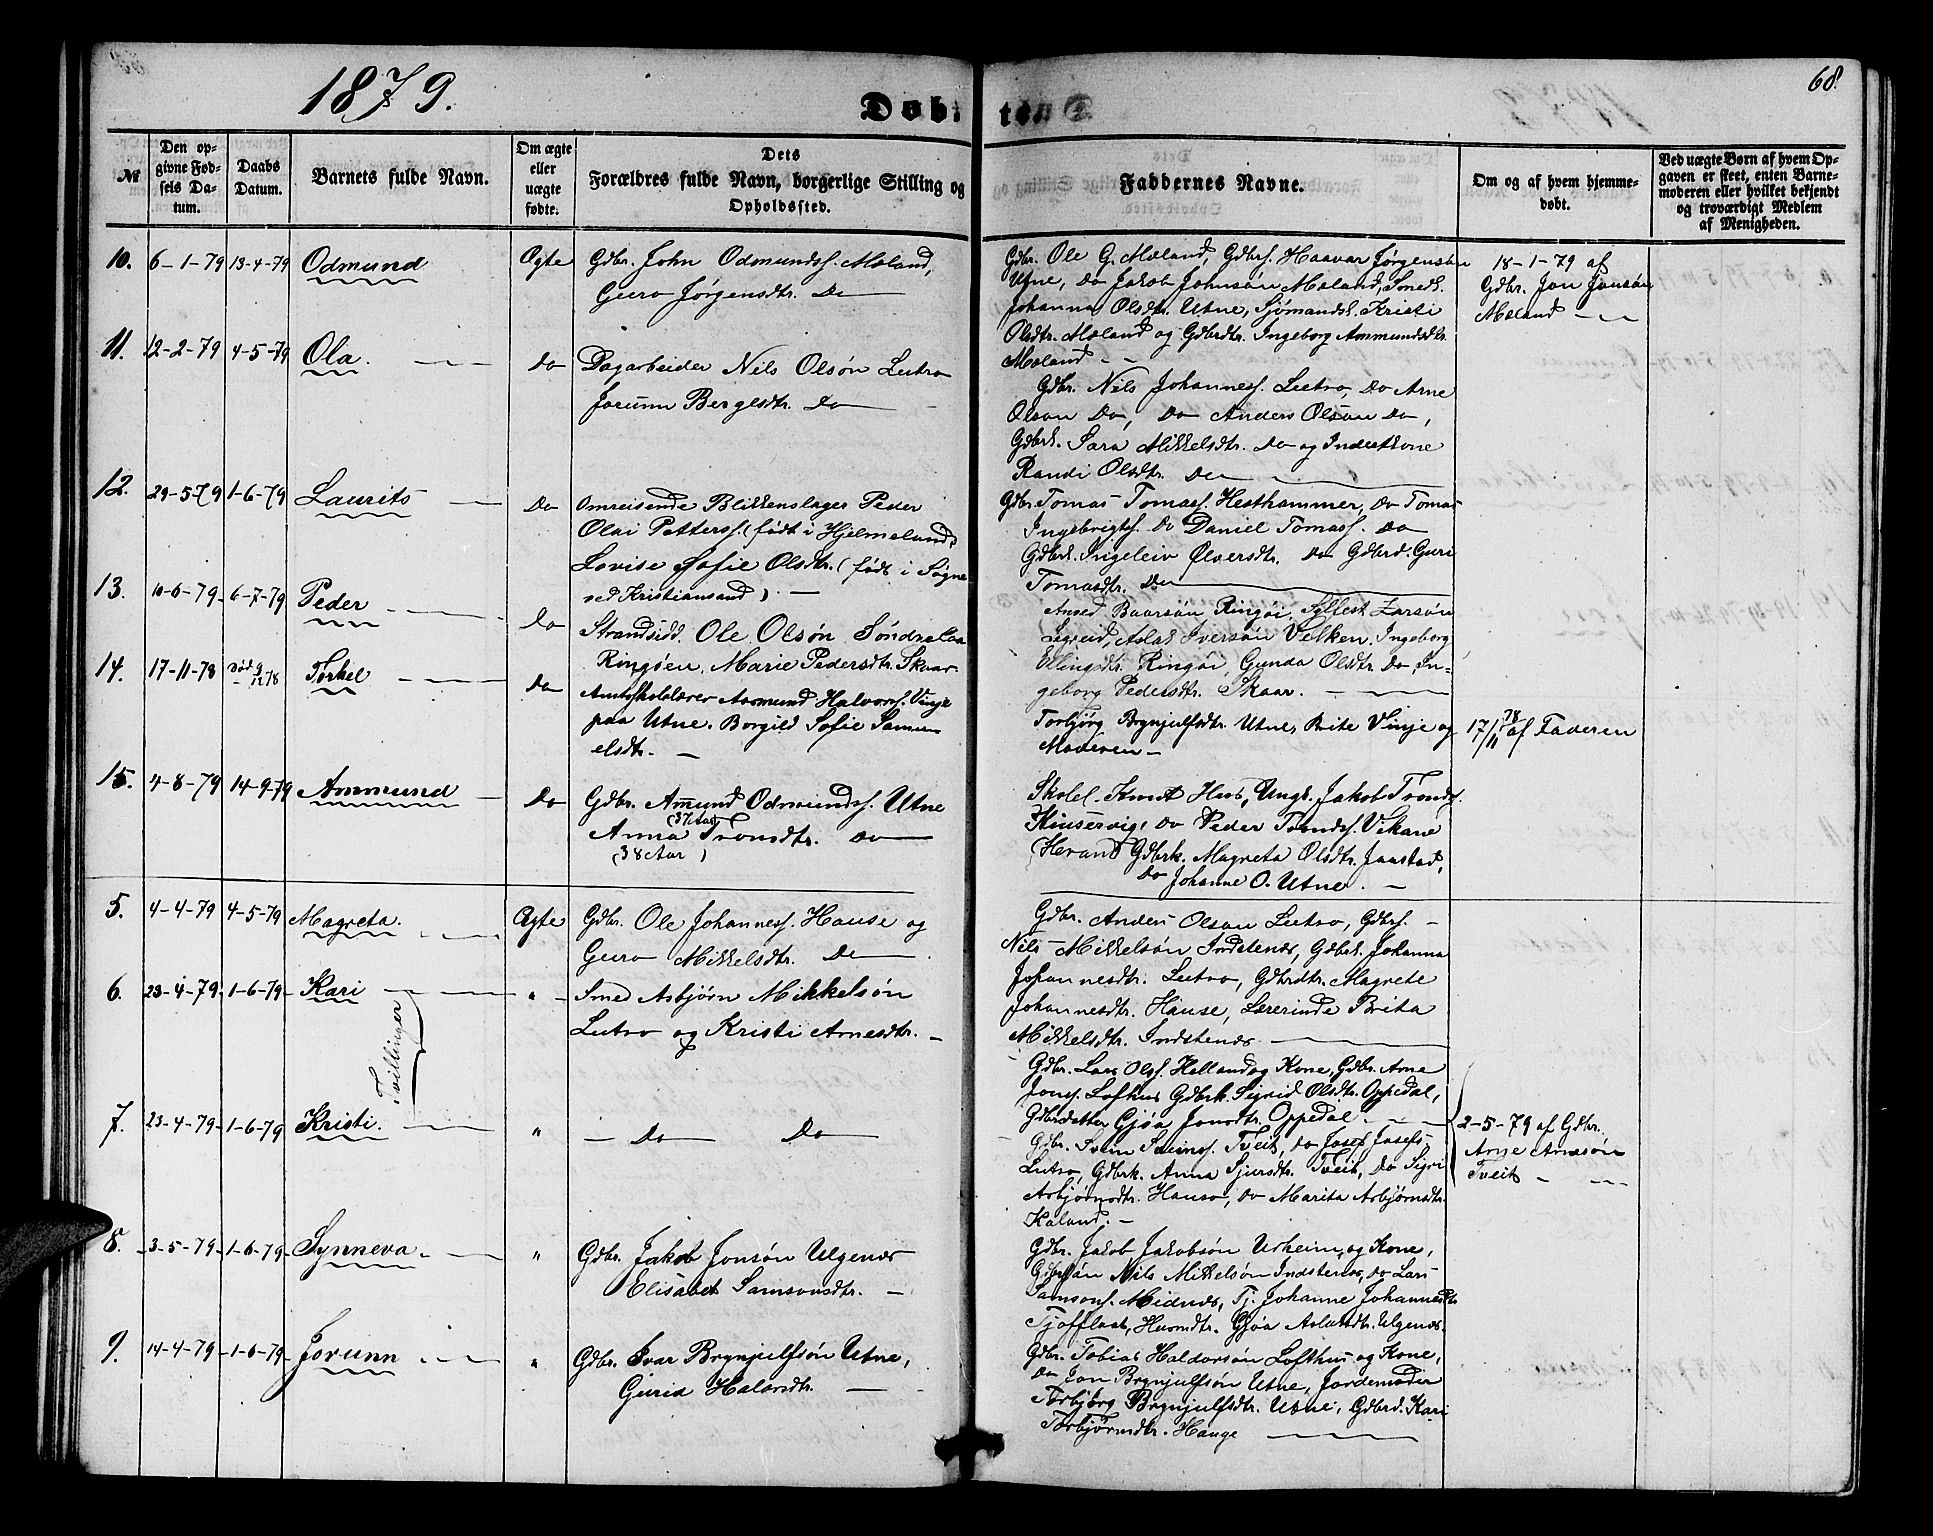 1879.
Døbte
68.
№
Den opgivne Fødsels Datum.
Daabs Datum.
Barnets fulde Navn.
Om ægte eller uægte fødte.
Dets Forældres fulde Navn, borgerlige Stilling og Opholdssted.
Faddernes Navne.
Om og af hvem hjemmedøbt.
Ved uægte Børn af hvem Opgaven er skeet, enten Barnemoderen eller hvilket bekjendt og troværdigt Medlem af Menigheden.
10. 6-1-79 13-4-79 Odmund Ægte
Gdbr. John Odmunds. Mæland,
Guro Jørgensdtr. Do
Gdbr. Ole G. Mæland, Gdbrs. Haavar Jørgensen
Utne, Do Jakob Johnsøn Mæland, Smedk.
Johanna Olsdtr. Utne, Sjømandsk. Kristi
Olsdtr. Mæland og Gdbrdtr. Ingeborg Ammundsdtr.
Mæland
18-1-79 af
Gdbr. Jon Jonsøn
Mæland
11. 12-2-79 4-5-79 Ola. Do
Dagarbeider Nils Olsøn Lutro
Jorunn Bergesdtr. Do
Gdbr. Nils Johanness. Lutro, Do Arne
Olson Do, Do Anders Olson Do,
Gdbrk. Sara Mikkelsdtr. Do og Inderstkone
Randi Olsdtr. Do
12. 29-5-79 1-6-79 Laurits Do
Omreisende Blikkenslager Peder
Olai Petters. (født i Hjelmeland,
Lovise Sofie Olsdtr. (født i Søgne
ved Kristiansand).
Gdbr. Tomas Tomass. Hesthammer, Do Tomas
Ingebrigts. Do Daniel Tomass. Do
Gdbrk. Ingeleiv Ølversdtr. Do Gdbrd. Guri
Tomasdtr. Do
13. 10-6-79 6-7-79 Peder Do
Strandsidd. Ole Olsøn
Ringøen, Marie Pedersdtr. Skaar
Baarsøn Ringøi, Sjllest Larsøn
Aslak Iversøn Velken, Ingeborg
Elingsdtr. Ringøi, Gunda Olsdtr. Do, In-
geborg Pedersdtr. Skaar.
14. 17-11-78 død 9/12 78 Torkel Do
Amtsskolelærer Aasmund Halvors. Vinje
paa Utne. Borgild Sofie Samu-
elsdtr.
Torbjørg Brynjulfsdtr. Utne, Brite Vinje og
Moderen
17/11 78 af Faderen
15. 4-8-79 14-9-79 Ammund Do
Gdbr. Amund Odmunds. Utne
(37 Aar)
Anna Tronsdtr. Do
(38 Aar)
Skolel. Knut Hus, Ungk. Jakob Tronds.
Kinservig, Do Peder Tronds. Vikane
Herand Gdbrk. Magreta Olsdtr. Jaastad,
Do Johanne O. Utne.
5. 4-4-79 4-5-79 Magreta. Ægte
Gdbr. Ole Johanness. Hause og
Guro Mikkelsdtr. Do
Gdbr. Anders Olson Lutro, Gdbrs.
Nils Mikkelsøn Indstenæs, Gdbrk. Johanna
Johannesdtr. Lutro, Gdbrdtr. Magrete
Johannesdtr. Hause, Lærerinde Brita
Mikkelsdtr. Indstenæs
6. 23-4-79 1-6-79 Kari "
Smed Asbjørn Mikkelsøn
Lutro og Kristi Arnesdtr.
Gdbr. Lars Ols. Helland og Kone, Gdbr. Arne
Jons. Lofthus Gdbrk. Sigrid Olsdtr. Oppedal,
Gdbrdatter Gjøa Jonsdtr. Oppedal
Tvillinger
7. 23-4-79 1-6-79 Kristi. "
Do Do
Gdbr. Svein Sveins. Tveit, Do Josef Josefs.
Lutro, Gdbrk. Anna Sjursdtr. Tveit, Do Sigri
Asbjørnsdtr. Hauso, Do Marita Asbjørnsdtr.
Kaland.
2-5-79 af Gdbr.
Arne Arnesøn
Tveit
8. 3-5-79 1-6-79 Synneva "
Gdbr. Jakob Jonsøn Ulgenæs
Elisabet Samsonsdtr.
Gdbr. Jakob Jakobsøn Urheim og Kone,
Gdbrsøn Nils Mikkelsøn Indstenæs, Do Lars
Samsons. Midnæs, Tj. Johanne Johannesdtr.
Tjofflaat, Husmdtr. Gjøa Aslaksdtr. Ulgenæs.
9. 14-4-79 1-6-79 Jorunn "
Gdbr. Ivar Brynjulfsøn Utne,
Gurid Halvrsdtr.
Gdbr. Tobias Haldorsøn Lofthus og Kone,
Do Jon Brynjulfsøn Utne, Jordemoder
Torbjørg Brynjulfsdtr. Utne, Gdbrd. Kari
Torbjørnsdtr. Hauge